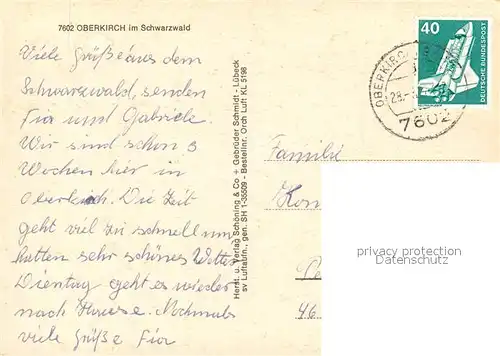 7602 OBERKIRCH im Schwarzwald
Viele Grüße aus dem
Schwarzwald, senden
Fia und Gabriele.
Wir sind schon 3
Wochen hier in
Oberkirch. Die Zeit
geht viel zu schnell um
hatten sehr schönes Wetter
Dienstag geht es wieder
nach Hause. Nochmals
viele Grüße Fia
Herst. u. Verlag Schöning & Co + Gebrüder Schmidt - Lübeck
sv Luftaufn., gen. SH 1-35509 - Bestellnr. Orch Luft KL 5198
40
DEUTSCHE BUNDESPOST
OBERKIRCH
28.
7602
Familie
46
privacy protection
Datenschutz